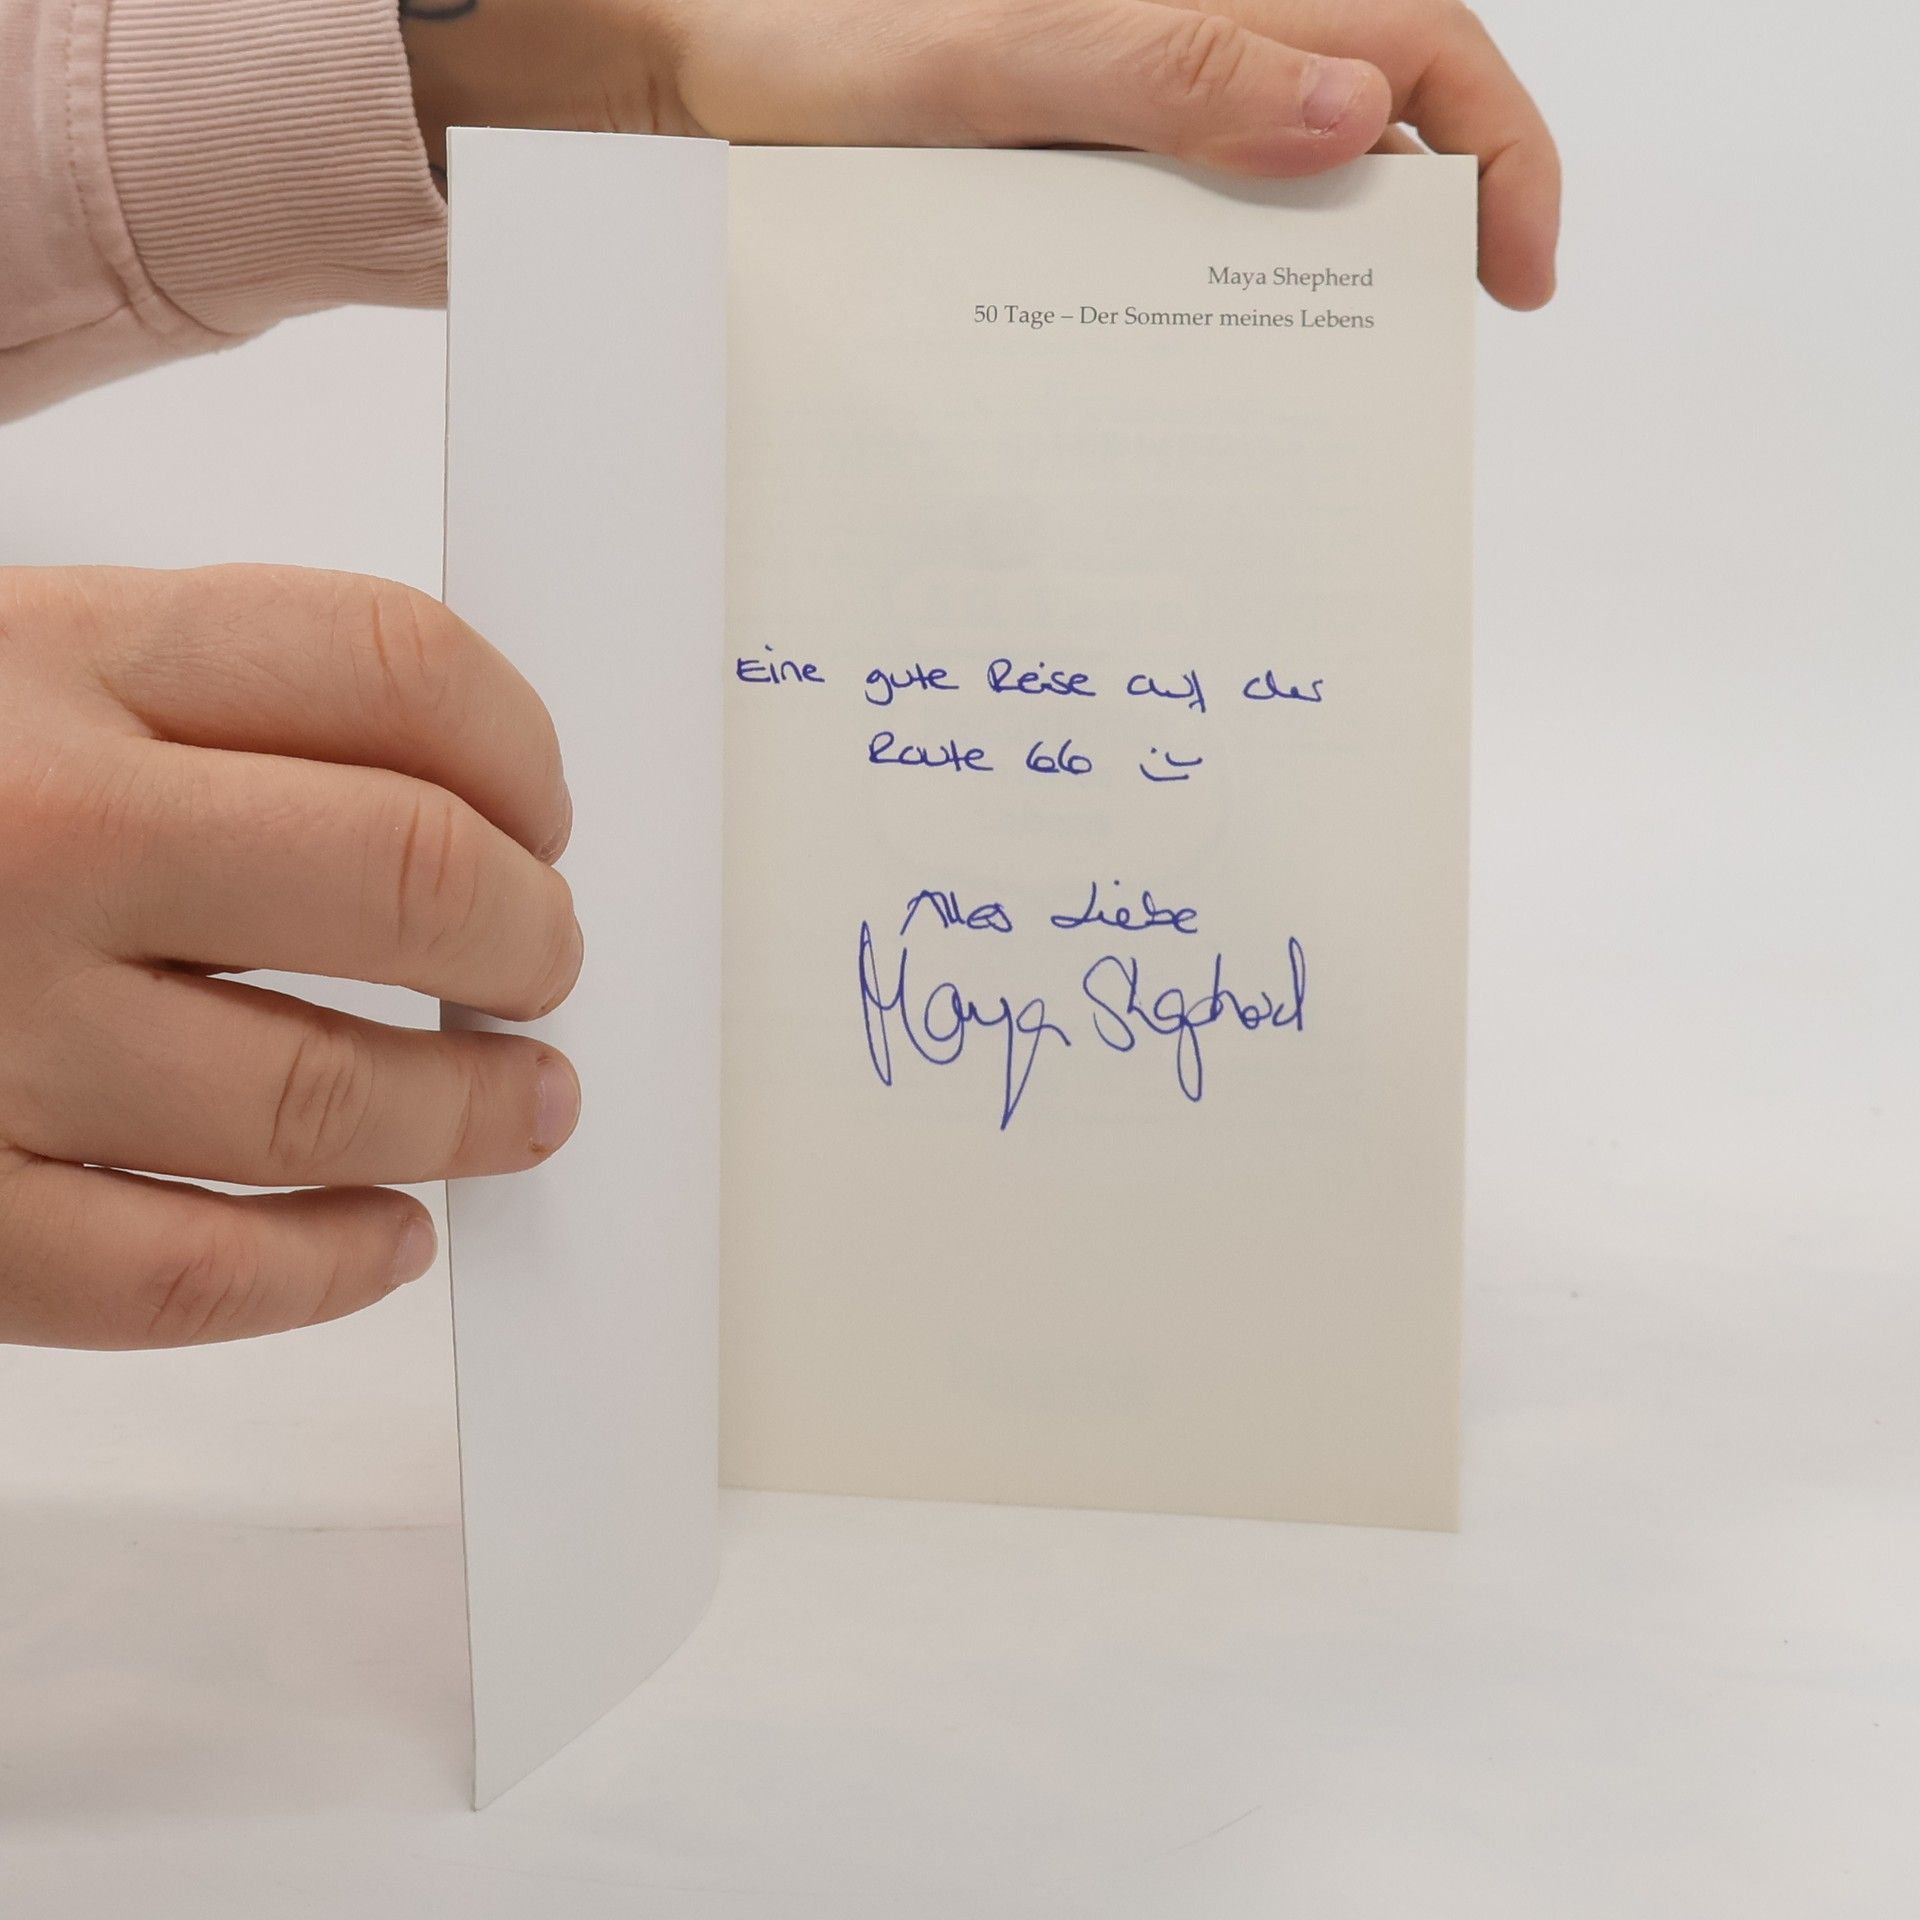 Maya Shepherd
50 Tage – Der Sommer meines Lebens
Eine gute Reise auf der
Route 66 :)
Alles Liebe
Maya Shepherd